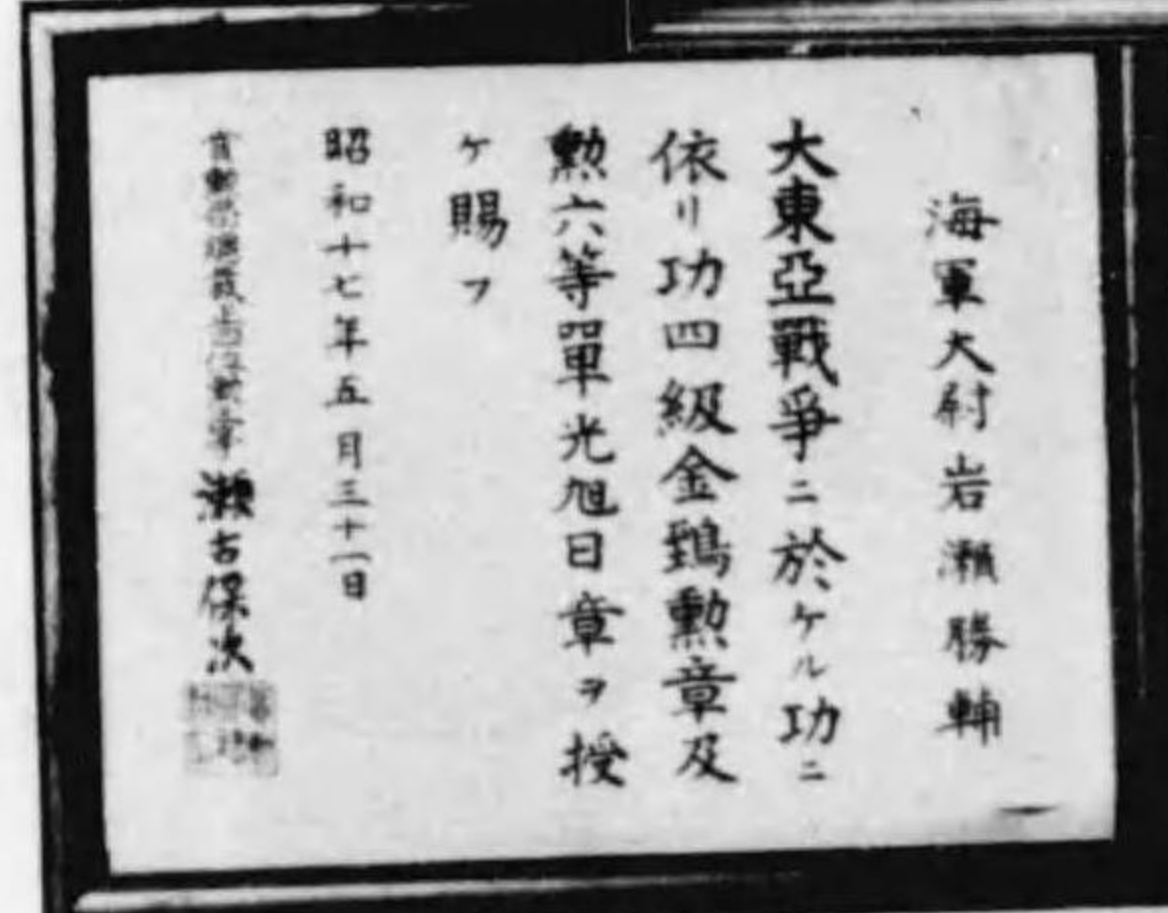 海軍大尉岩瀬勝輔
大東亞戰爭ニ於ケル功ニ
依リ功四級金鵄勲章及
勲六等單光旭日章ヲ授
ケ賜フ
昭和十七年五月三十一日
賞勲局総裁従三位勲二等 瀬古保次